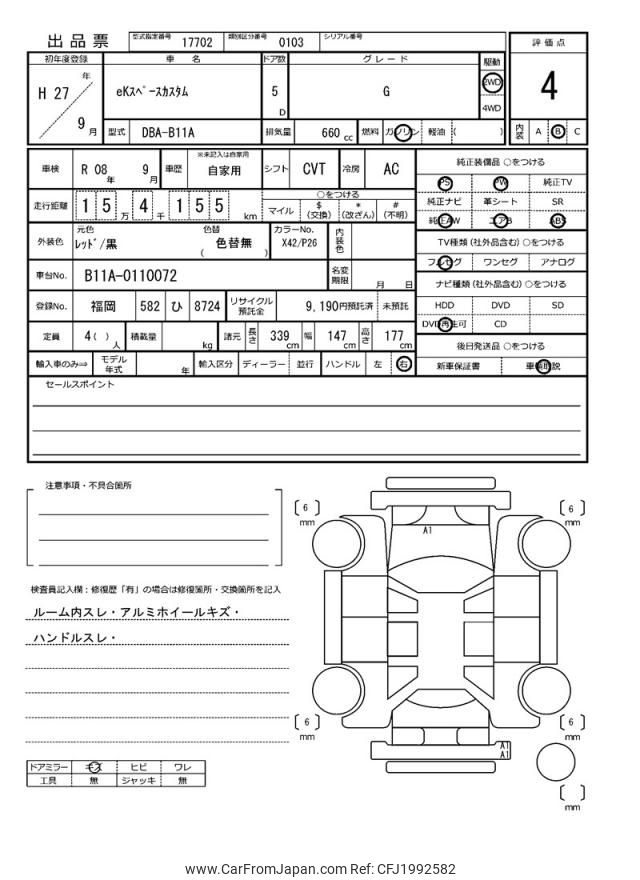 出品票 型式指定番号 17702 類別区分番号 0103 シリアル番号
評価点
4
内装 A B C
初年度登録 車名 ドア数 グレード 駆動
H 27 年 9 月 eKスペースカスタム 5 D G 2WD 4WD
型式 DBA-B11A 排気量 660 cc 燃料 ガソリン 軽油 ( )
車検 R 08 年 9 月 車歴 ※未記入は自家用 自家用 シフト CVT 冷房 AC
走行距離 1 5 万 4 千 1 5 5 km ○をつける
マイル $(交換) *(改ざん) #(不明)
外装色 元色 レッド/黒 色替 ( 色替無 ) カラーNo. X42/P26 内装色
車台No. B11A-0110072 名変期限 月 日
登録No. 福岡 582 ひ 8724 リサイクル預託金 9,190円預託済 未預託
定員 4( ) 人 積載量 kg 諸元 長さ 339 cm 幅 147 cm 高さ 177 cm
輸入車のみ⇒ モデル年式 年 輸入区分 ディーラー 並行 ハンドル 左 右
純正装備品 ○をつける
PS PW 純正TV
純正ナビ 革シート SR
純正AW エアB ABS
TV種類(社外品含む) ○をつける
フルセグ ワンセグ アナログ
ナビ種類(社外品含む) ○をつける
HDD DVD SD
DVD再生可 CD
後日発送品 ○をつける
新車保証書 車輌取説
セールスポイント
注意事項・不具合箇所
検査員記入欄:修復歴「有」の場合は修復箇所・交換箇所を記入
ルーム内スレ・アルミホイールキズ・
ハンドルスレ・
ドアミラー キズ ヒビ ワレ
工具 無 ジャッキ 無
[ 6 ] mm
[ 6 ] mm
A1
[ 6 ] mm
[ 6 ] mm
A1
A1
[ ] mm
www.CarFromJapan.com Ref: CFJ1992582